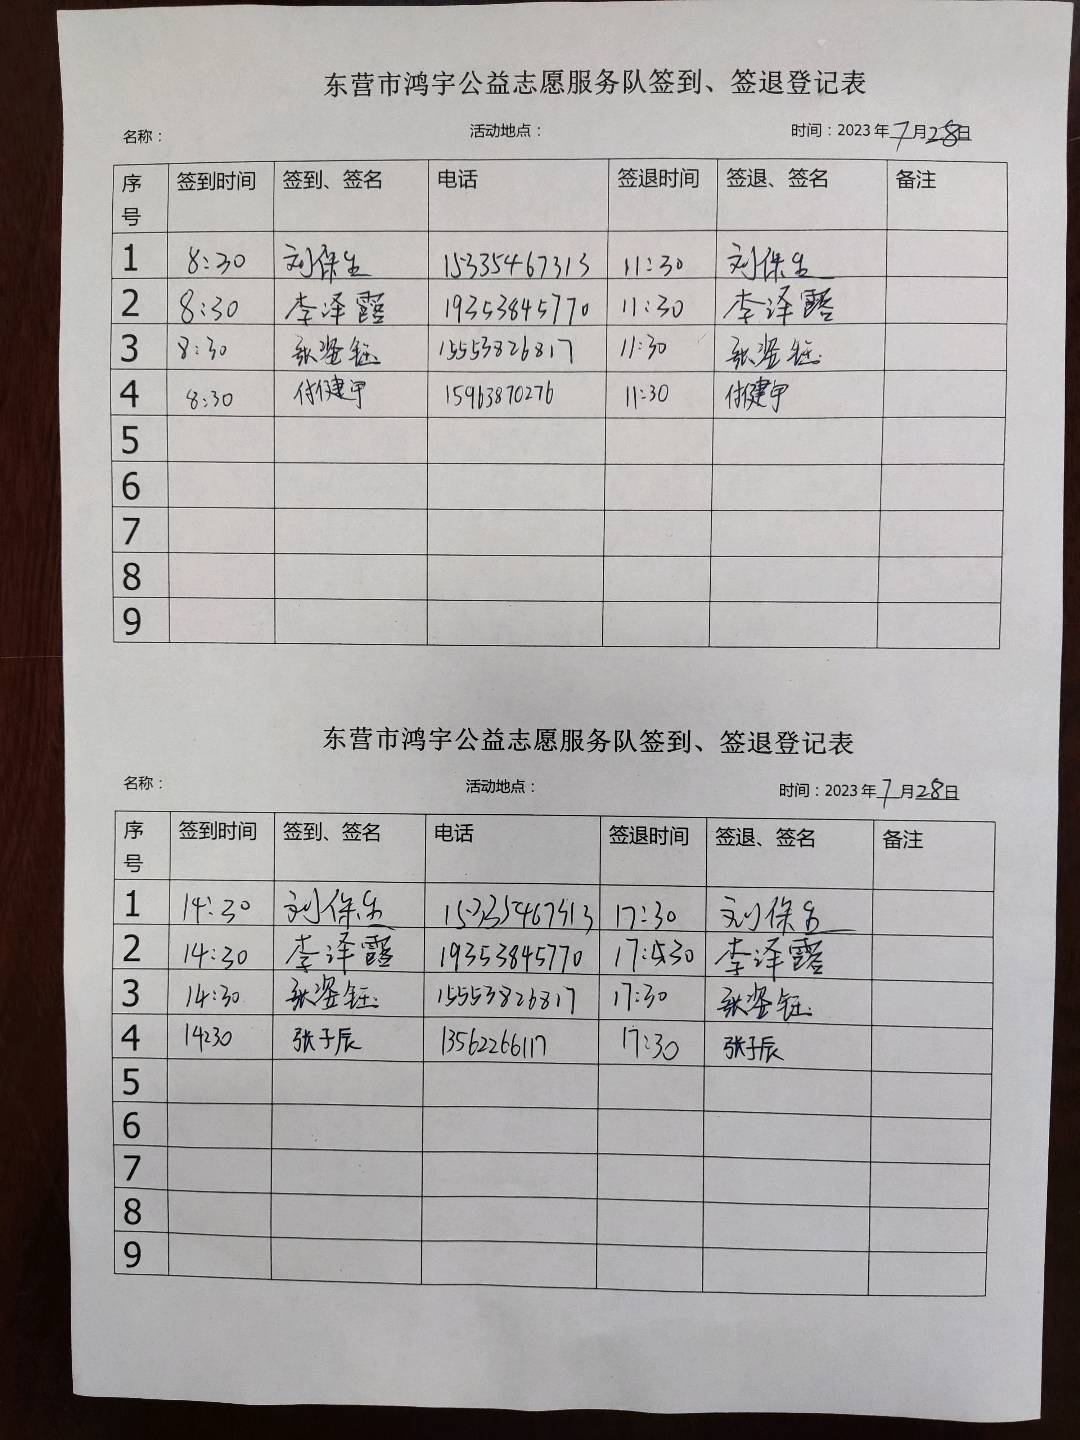 东营市鸿宇公益志愿服务队签到、签退登记表
名称： 活动地点： 时间：2023年7月28日
序号 签到时间 签到、签名 电话 签退时间 签退、签名 备注
1 8:30 刘保生 15335467313 11:30 刘保生
2 8:30 李泽霞 19353845770 11:30 李泽霞
3 8:30 张鉴钰 15553826817 11:30 张鉴钰
4 8:30 付健甲 15963870276 11:30 付健甲
5
6
7
8
9
东营市鸿宇公益志愿服务队签到、签退登记表
名称： 活动地点： 时间：2023年7月28日
序号 签到时间 签到、签名 电话 签退时间 签退、签名 备注
1 14:30 刘保生 15335467313 17:30 刘保生
2 14:30 李泽霞 19353845770 17:30 李泽霞
3 14:30 张鉴钰 15553826817 17:30 张鉴钰
4 1430 张子辰 13562266117 17:30 张子辰
5
6
7
8
9